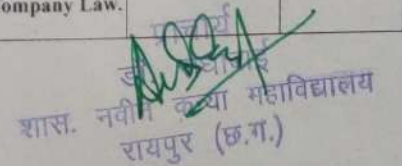 ompany Law.
प्राचार्य
शास. नवीन कन्या महाविद्यालय
रायपुर (छ.ग.)